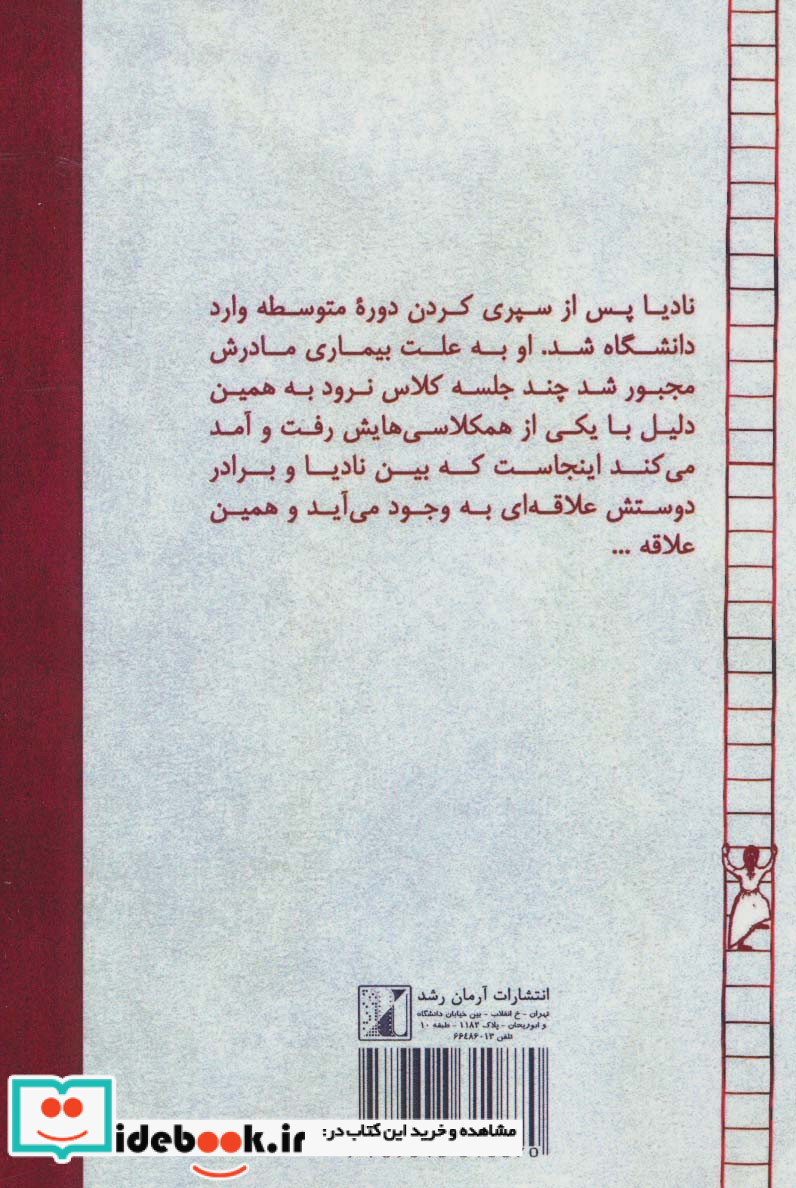 نادیا پس از سپری کردن دورهٔ متوسطه وارد
دانشگاه شد. او به علت بیماری مادرش
مجبور شد چند جلسه کلاس نرود به همین
دلیل با یکی از همکلاسی‌هایش رفت و آمد
می‌کند اینجاست که بین نادیا و برادر
دوستش علاقه‌ای به وجود می‌آید و همین
علاقه ...
انتشارات آرمان رشد
تهران - خ انقلاب - بین خیابان دانشگاه
و ابوریحان - پلاک ۱۱۸۲ - طبقه ۱۰
تلفن ۶۶۴۸۶۰۱۳
مشاهده و خرید این کتاب در:
idebook.ir